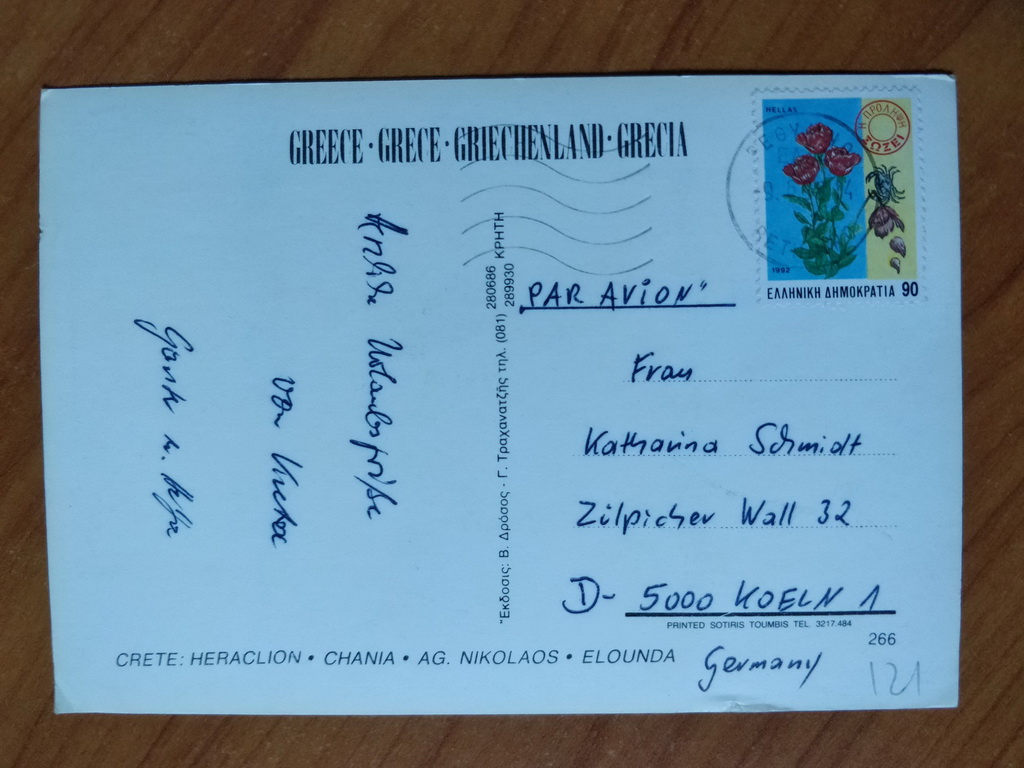 GREECE · GRECE · GRIECHENLAND · GRECIA
HELLAS
Η ΠΡΟΛΗΨΗ
ΣΩΖΕΙ
1992
ΕΛΛΗΝΙΚΗ ΔΗΜΟΚΡΑΤΙΑ 90
Urlaubsgrüße
von Kreta
"Εκδοσις: Β. Δρόσος - Γ. Τραχανατζής τηλ. (081) 280686 ΚΡΗΤΗ
289930
"PAR AVION"
Frau
Katharina Schmidt
Zülpicher Wall 32
D- 5000 KOELN 1
PRINTED SOTIRIS TOUMBIS TEL. 3217.484
266
Germany
121
CRETE: HERACLION • CHANIA • AG. NIKOLAOS • ELOUNDA